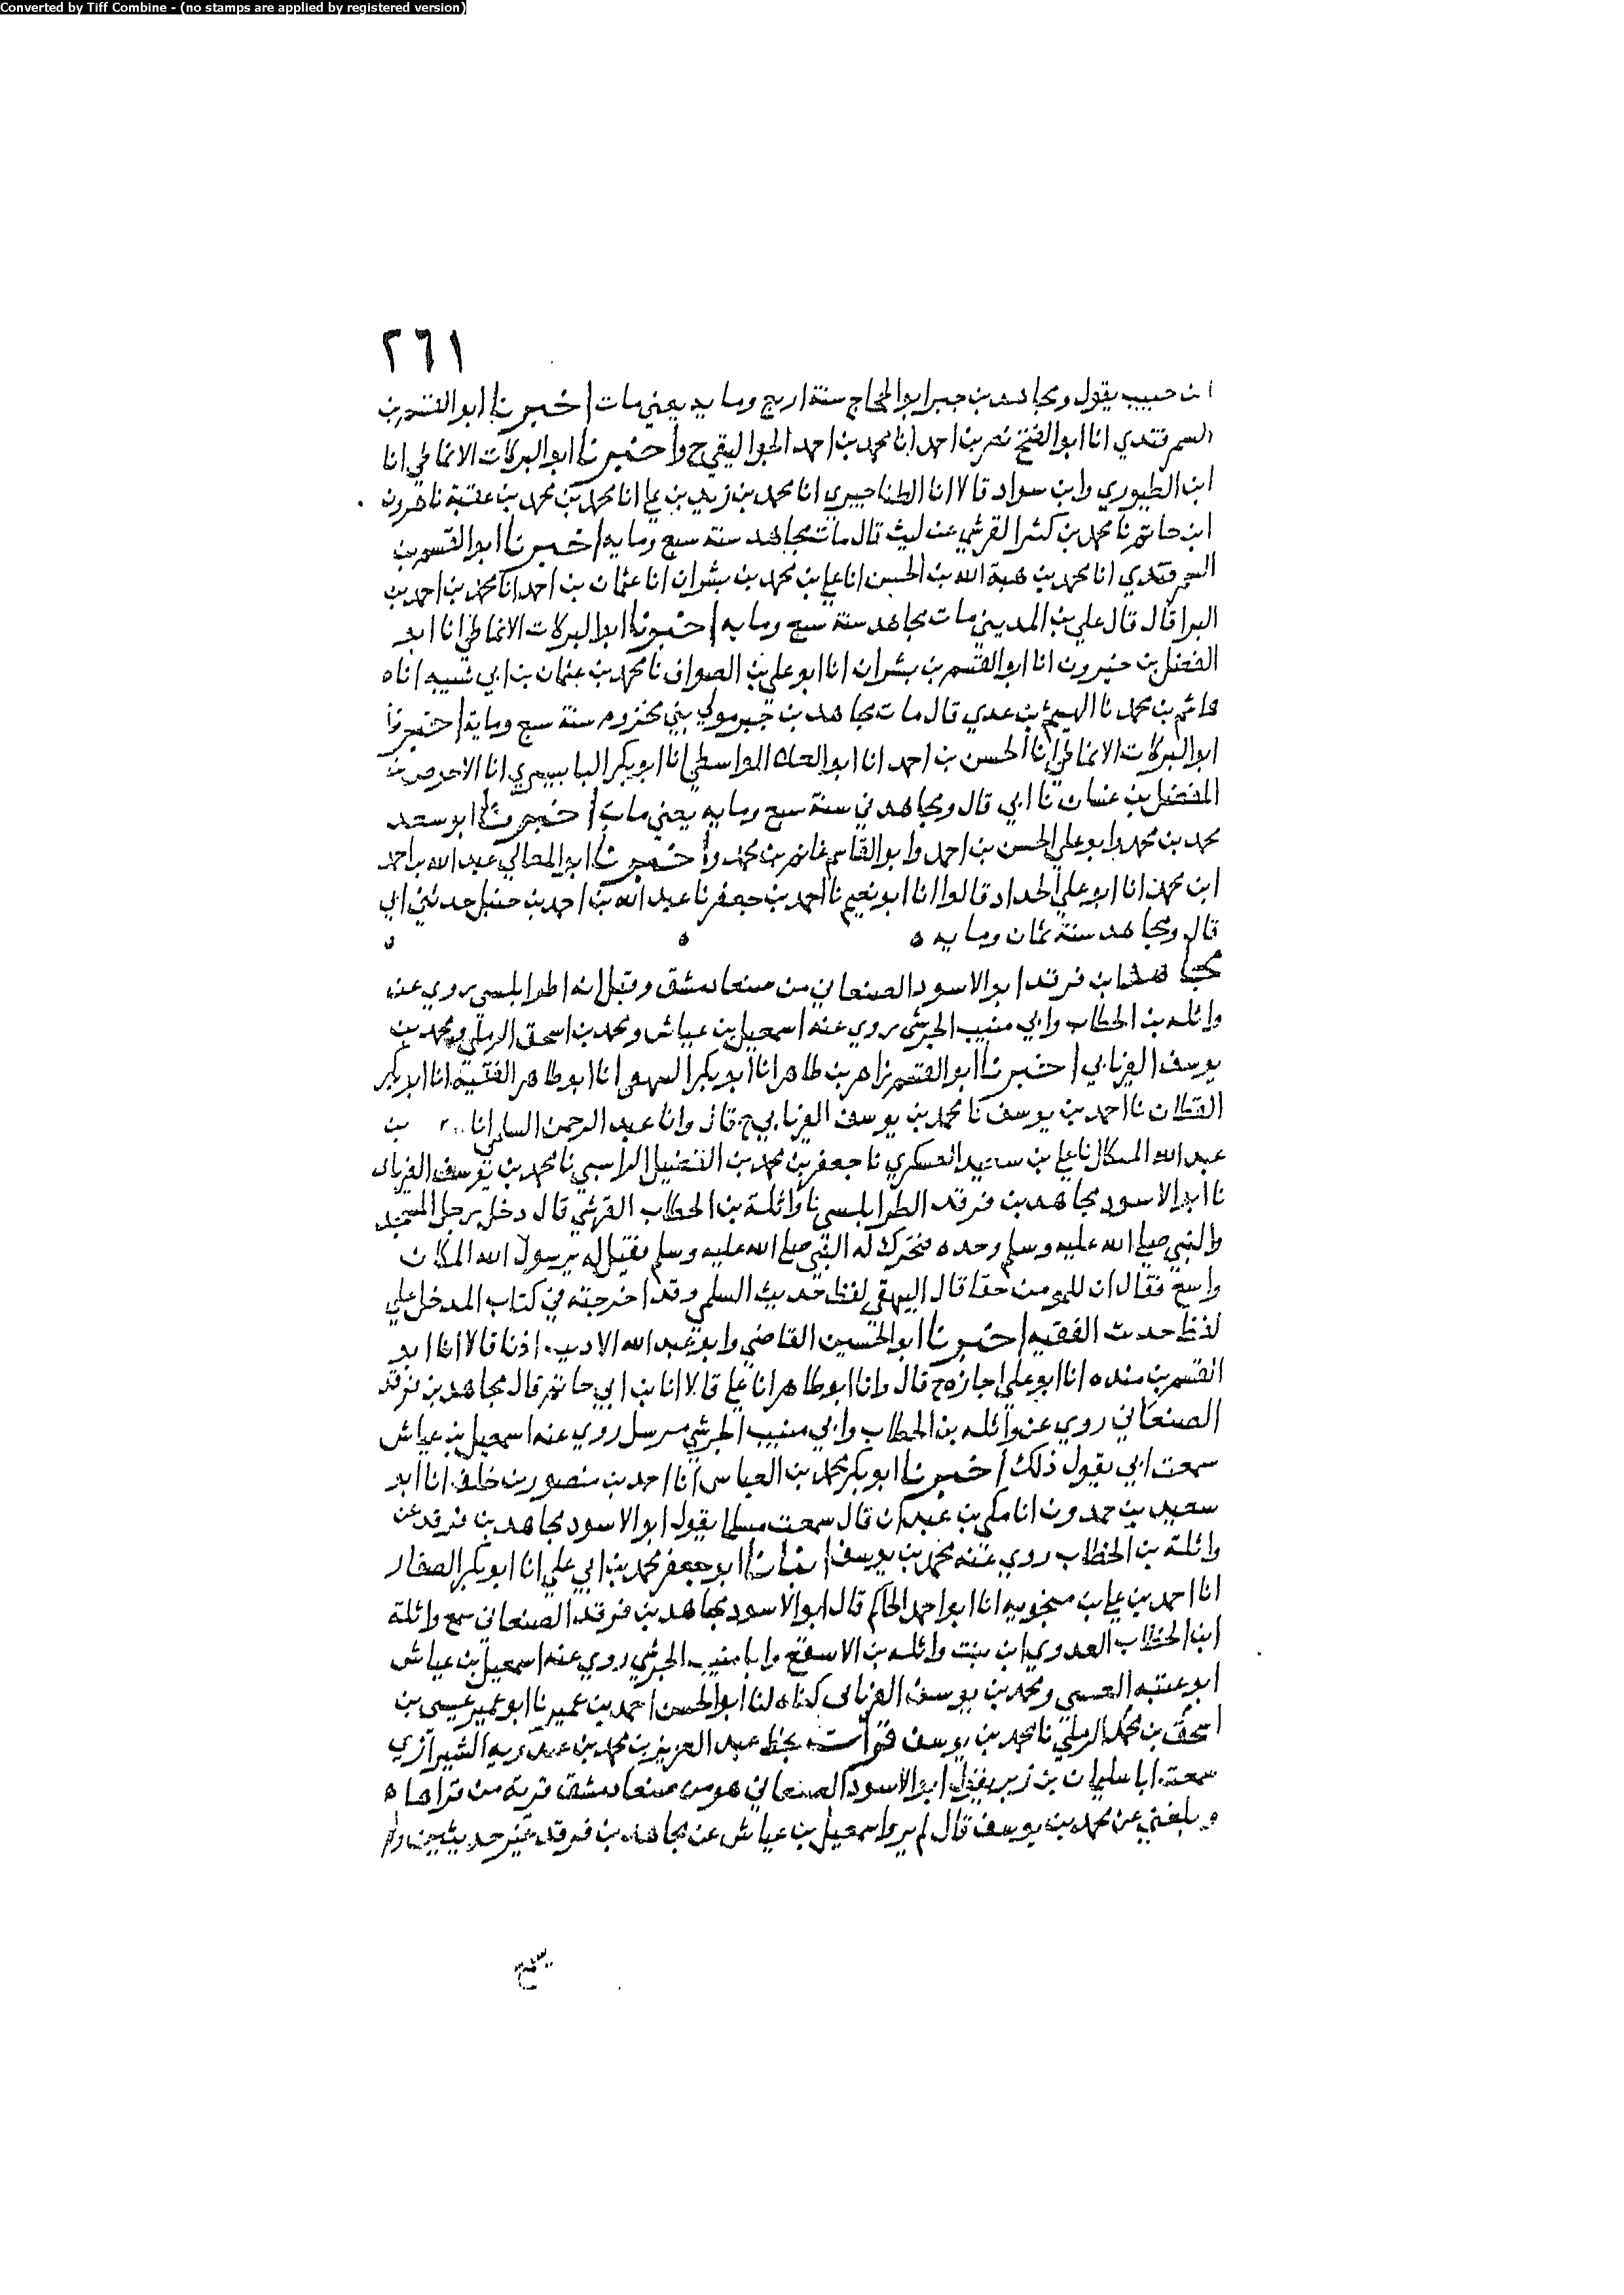 Converted by Tiff Combine - (no stamps are applied by registered version)
٢٦١
ابن حبيب يقول ومجاهد بن جبر ابو الحجاج سنة اربع ومايه يعني مات اخبرنا ابو القسم بن
السمرقندي انا ابو الفتح نصر بن احمد انا محمد بن احمد الجواليقي ح واخبرنا ابو البركات الانماطي انا
ابن الطيوري وابن سواد قالا انا الطناجيري انا محمد بن زيد بن علي انا محمد بن محمد بن عقبة نا هرون
ابن حاتم نا محمد بن كثير القرشي عن ليث قال مات مجاهد سنة سبع ومايه اخبرنا ابو القسم بن
السمرقندي انا محمد بن هبة الله بن الحسن انا علي بن محمد بن بشران انا عثمان بن احمد انا محمد بن احمد بن
البرا قال قال علي بن المديني مات مجاهد سنة سبع ومايه اخبرنا ابو البركات الانماطي انا ابو
الفضل بن خيرون انا ابو القسم بن بشران انا ابو علي بن الصواف نا محمد بن عثمان بن ابي شيبه انا
هاشم بن محمد نا الهيثم بن عدي قال مات مجاهد بن جبر مولي بني مخزوم سنة سبع وماية اخبرنا
ابو البركات الانماطي انا الحسن بن احمد انا ابو العلا الواسطي انا ابو بكر البابسيري انا الاحوص بن
المفضل بن غسان نا ابي قال ومجاهد في سنة سبع ومايه يعني مات اخبرنا ابو سعد
محمد بن محمد وابو علي الحسن بن احمد وابو القاسم غانم بن محمد واخبرنا ابو المعالي عبد الله بن احمد
ابن محمد انا ابو علي الحداد قالوا انا ابو نعيم نا احمد بن جعفر نا عبد الله بن احمد بن حنبل حدثني ابي
قال ومجاهد سنة ثمان ومايه ه ه ه
مجاهد بن فرقد ابو الاسود الصنعاني من صنعا دمشق وقيل انه اطرابلسي روي عن
واثله بن الخطاب وابي منيب الجرشي روي عنه اسمعيل بن عياش ومحمد بن اسحق الرملي ومحمد بن
يوسف الفريابي اخبرنا ابو القسم زاهر بن طاهر انا ابو بكر البيهقي انا ابو طاهر الفقيه انا ابو بكر
القطان نا احمد بن يوسف نا محمد بن يوسف الفريابي ح قال وانا عبد الرحمن السلمي انا بن
عبد الله الميكالي نا علي بن سعيد العسكري نا جعفر بن محمد بن الفضيل الراسبي نا محمد بن يوسف الفريابي
نا ابو الاسود مجاهد بن فرقد الطرابلسي نا واثلة بن الخطاب القرشي قال دخل رجل المسجد
والنبي صلي الله عليه وسلم وحده فتحرك له النبي صلي الله عليه وسلم فقيل له يرسول الله المكان
واسع فقال ان للمومن حقا قال البيهقي لفظ حديث السلمي وقد اخرجته في كتاب المدخل علي
لفظ حديث الفقيه اخبرنا ابو الحسين القاضي وابو عبد الله الاديب اذنا قالا انا ابو
القسم بن منده انا ابو علي اجازه ح قال وانا ابو طاهر انا علي قالا انا بن ابي حاتم قال مجاهد بن فرقد
الصنعاني روي عن واثله بن الخطاب وابي منيب الجرشي مرسل روي عنه اسمعيل بن عياش
سمعت ابي يقول ذلك اخبرنا ابو بكر محمد بن العباس انا احمد بن منصور بن خلف انا ابو
سعيد بن حمدون انا مكي بن عبدان قال سمعت مسلما يقول ابو الاسود مجاهد بن فرقد عن
واثلة بن الخطاب روي عنه محمد بن يوسف انبانا ابو جعفر محمد بن ابي علي انا ابو بكر الصفار
انا احمد بن علي بن منجويه انا ابو احمد الحاكم قال ابو الاسود مجاهد بن فرقد الصنعاني سمع واثلة
ابن الخطاب العدوي ابن بنت واثله بن الاسقع وابا منيب الجرشي روي عنه اسمعيل بن عياش
ابو عتبه العنسي ومحمد بن يوسف الفريابي كناه لنا ابو الحسن احمد بن عمير نا ابو عمير عيسي بن
اسحق بن محمد الرملي نا محمد بن يوسف قرات بخط عبد العزيز بن محمد بن عبدويه الشيرازي
سمعت ابا سليمان بن زبر يقول ابو الاسود الصنعاني هو من صنعا دمشق قرية من قراها ه
وبلغني عن محمد بن يوسف قال لم يرو اسمعيل بن عياش عن مجاهد بن فرقد غير حديثين وا